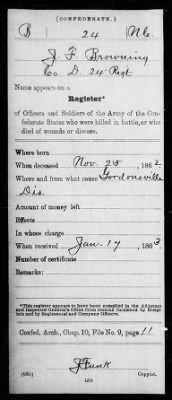 (CONFEDERATE.)
B 24 N.C.
J. F. Browning
Co. D, 24 Regt
Name appears on a
Register*
of Officers and Soldiers of the Army of the Con-
federate States who were killed in battle, or who
died of wounds or disease.
Where born
When deceased Nov. 25, 1862
Where and from what cause Gordonsville
Dis.
Amount of money left
Effects
In whose charge
When received Jan. 17, 1863
Number of certificate
Remarks:
*This register appears to have been compiled in the Adjutant
and Inspector General's Office from records furnished by Hospi-
tals and by Regimental and Company Officers.
Confed. Arch., Chap. 10, File No. 9, page 11
J Funk
(635) Copyist.